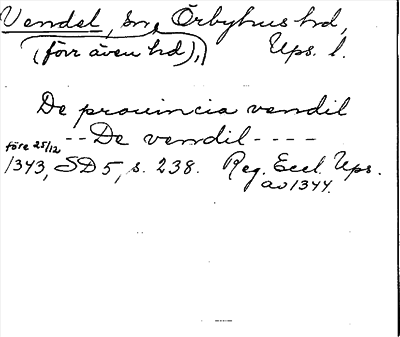 Vendel, sn, Örbyhus hd,
(förr även hd), Ups. l.
De prouincia vendil
-- De vendil ----
före 25/12
1343, SD 5, s. 238. Reg. Eccl. Ups.
av 1344.